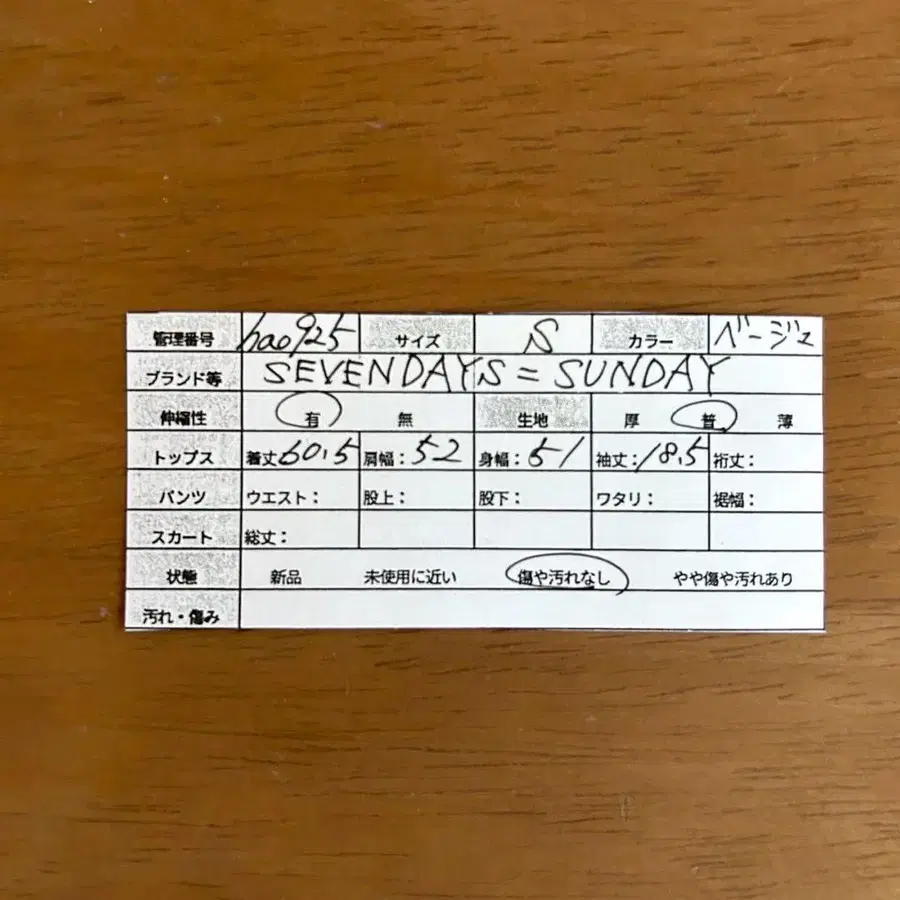 管理番号 hao925 サイズ S カラー ベージュ
ブランド等 SEVENDAYS = SUNDAY
伸縮性 有 無 生地 厚 普 薄
トップス 着丈60.5 肩幅：52 身幅：51 袖丈：18.5 裄丈：
パンツ ウエスト： 股上： 股下： ワタリ： 裾幅：
スカート 総丈：
状態 新品 未使用に近い 傷や汚れなし やや傷や汚れあり
汚れ・傷み